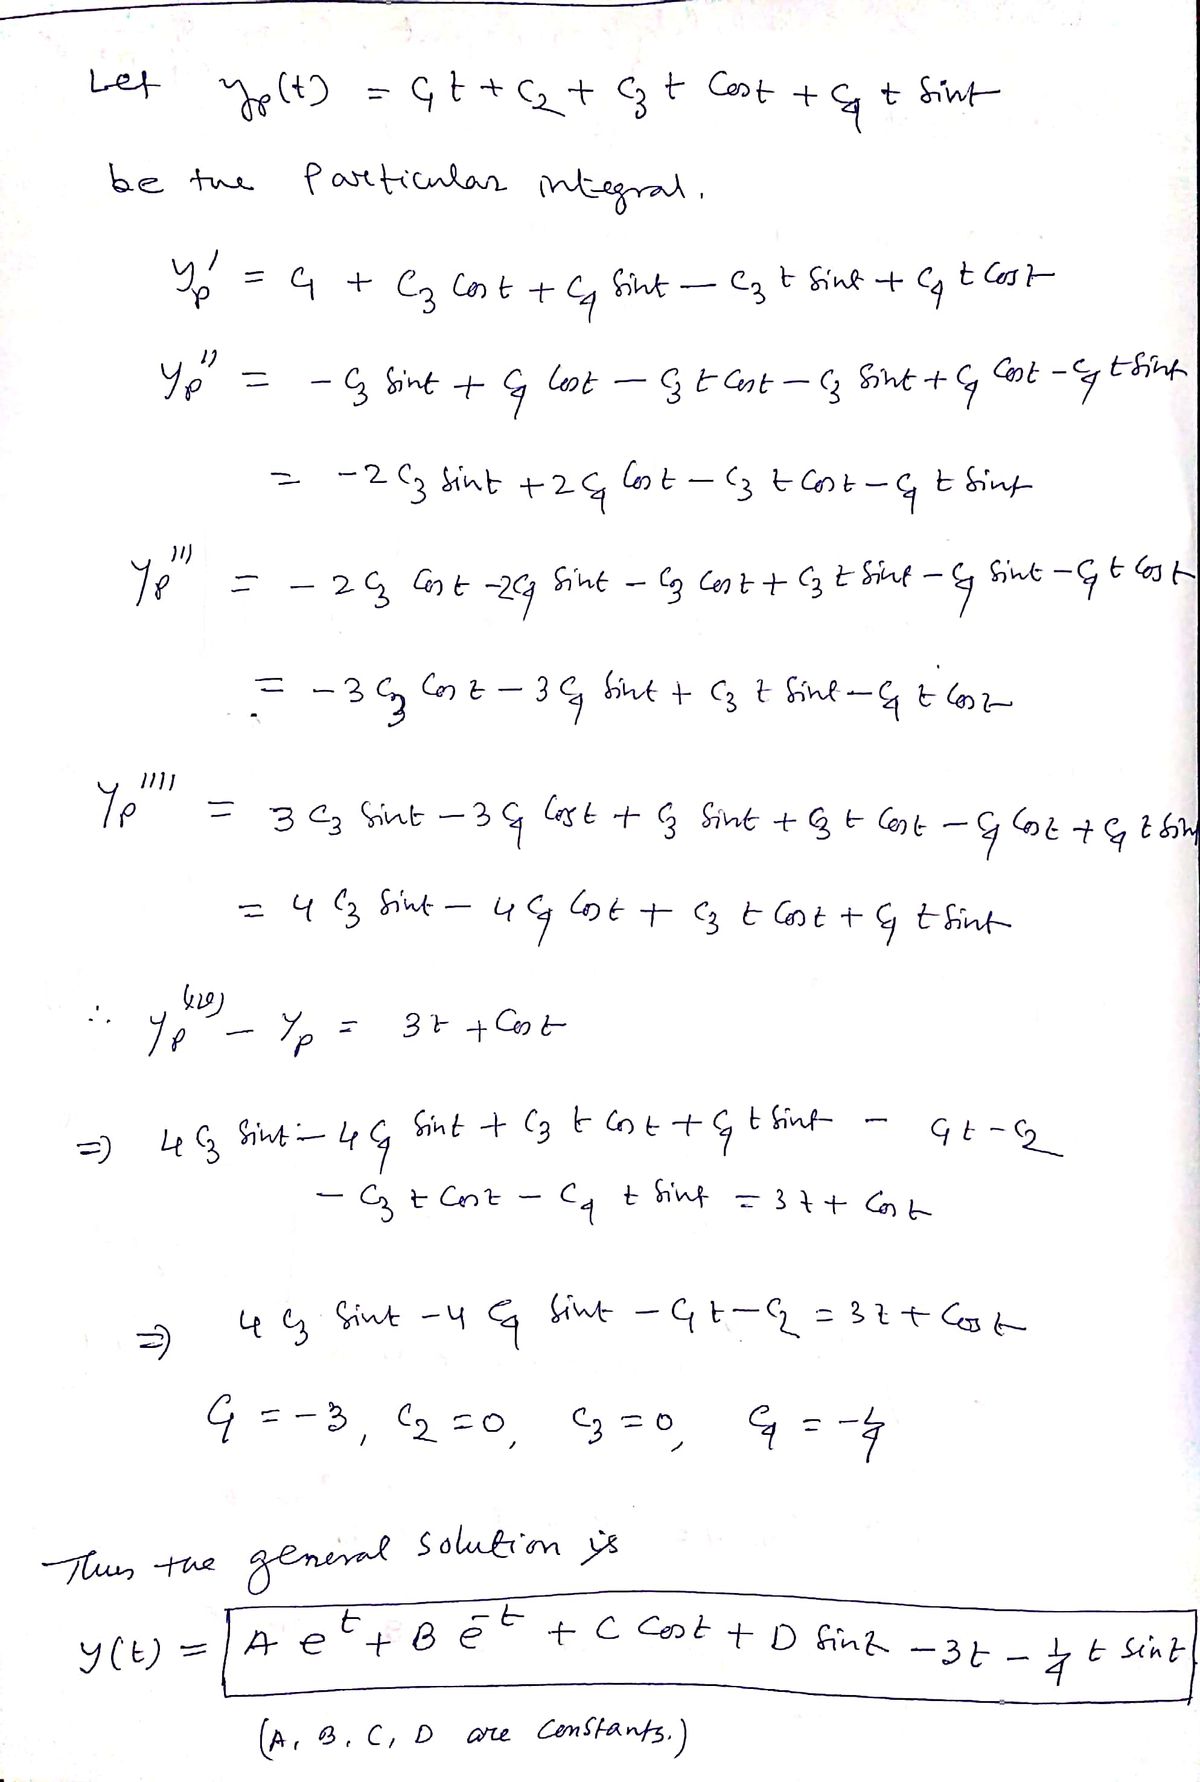 Let y_p(t) = C₁t + C₂ + C₃ t Cost + C₄ t Sint
be the Particular integral.
y_p' = C₁ + C₃ Cost + C₄ Sint − C₃ t Sint + C₄ t Cost
y_p'' = − C₃ Sint + C₄ Cost − C₃ t Cost − C₃ Sint + C₄ Cost − C₄ t Sint
= −2 C₃ Sint + 2 C₄ Cost − C₃ t Cost − C₄ t Sint
y_p''' = − 2 C₃ Cost −2C₄ Sint − C₃ Cost + C₃ t Sint − C₄ Sint − C₄ t Cost
= −3 C₃ Cost − 3 C₄ Sint + C₃ t Sint − C₄ t Cost
y_p'''' = 3 C₃ Sint − 3 C₄ Cost + C₃ Sint + C₃ t Cost − C₄ Cost + C₄ t Sin
= 4 C₃ Sint − 4 C₄ Cost + C₃ t Cost + C₄ t Sint
∴ y_p^(iv) − y_p = 3t + Cost
⇒ 4 C₃ Sint − 4 C₄ Sint + C₃ t Cost + C₄ t Sint − C₁t − C₂
− C₃ t Cost − C₄ t Sint = 3t + Cost
⇒ 4 C₃ Sint − 4 C₄ Sint − C₁t − C₂ = 3t + Cost
C₁ = −3, C₂ = 0, C₃ = 0, C₄ = −1/4
Thus the general solution is
y(t) = A e^t + B e^−t + C Cost + D Sint − 3t − 1/4 t Sint
(A, B, C, D are Constants.)